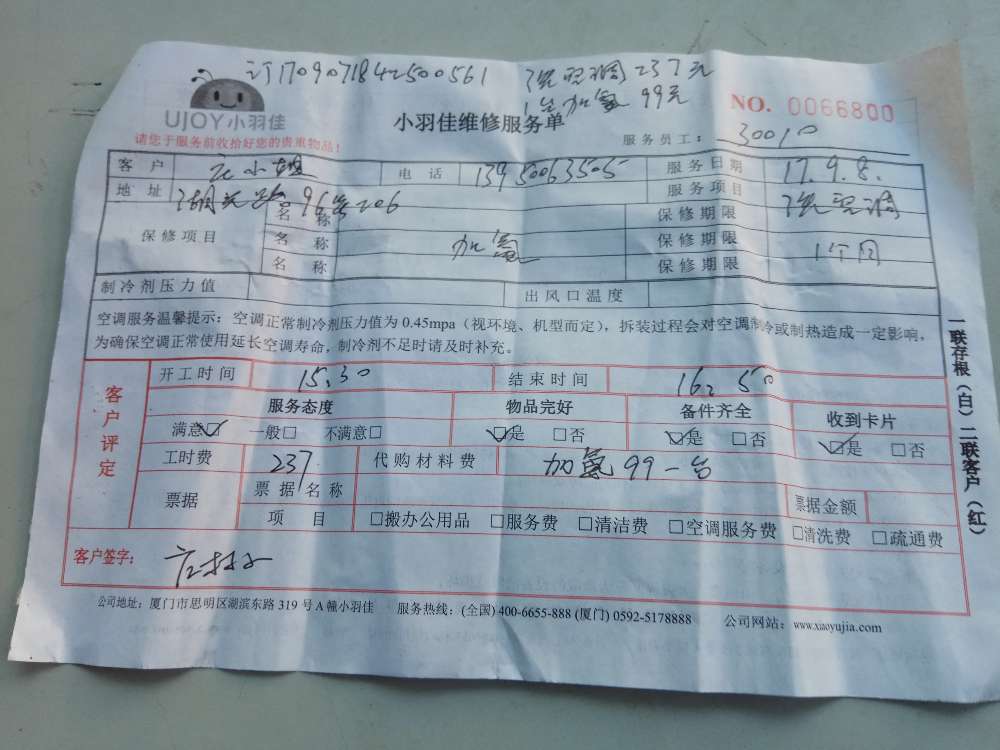 订1709071842500561 洗空调237元
1台加氟 99元
UJOY小羽佳 小羽佳维修服务单 NO. 0066800
请您于服务前收拾好您的贵重物品! 服务员工: 30010
客户 庄小姐 电话 13950063505 服务日期 17.9.8.
地址 96号206 服务项目 洗空调
保修项目 名称 保修期限
名称 加氟 保修期限 1个月
名称 保修期限
制冷剂压力值 出风口温度
空调服务温馨提示: 空调正常制冷剂压力值为 0.45mpa (视环境、机型而定), 拆装过程会对空调制冷或制热造成一定影响,
为确保空调正常使用延长空调寿命, 制冷剂不足时请及时补充。
客户评定
开工时间 15.30 结束时间 16:50
服务态度 物品完好 备件齐全 收到卡片
满意☑ 一般□ 不满意□ ☑是 □否 ☑是 □否 ☑是 □否
工时费 237 代购材料费 加氟 99一台
票据 票据名称 票据金额
项目 □搬办公用品 □服务费 □清洁费 □空调服务费 □清洗费 □疏通费
客户签字:
公司地址: 厦门市思明区湖滨东路 319 号 A 幢小羽佳 服务热线: (全国) 400-6655-888 (厦门) 0592-5178888 公司网站: www.xiaoyujia.com
一联存根(白) 二联客户(红)